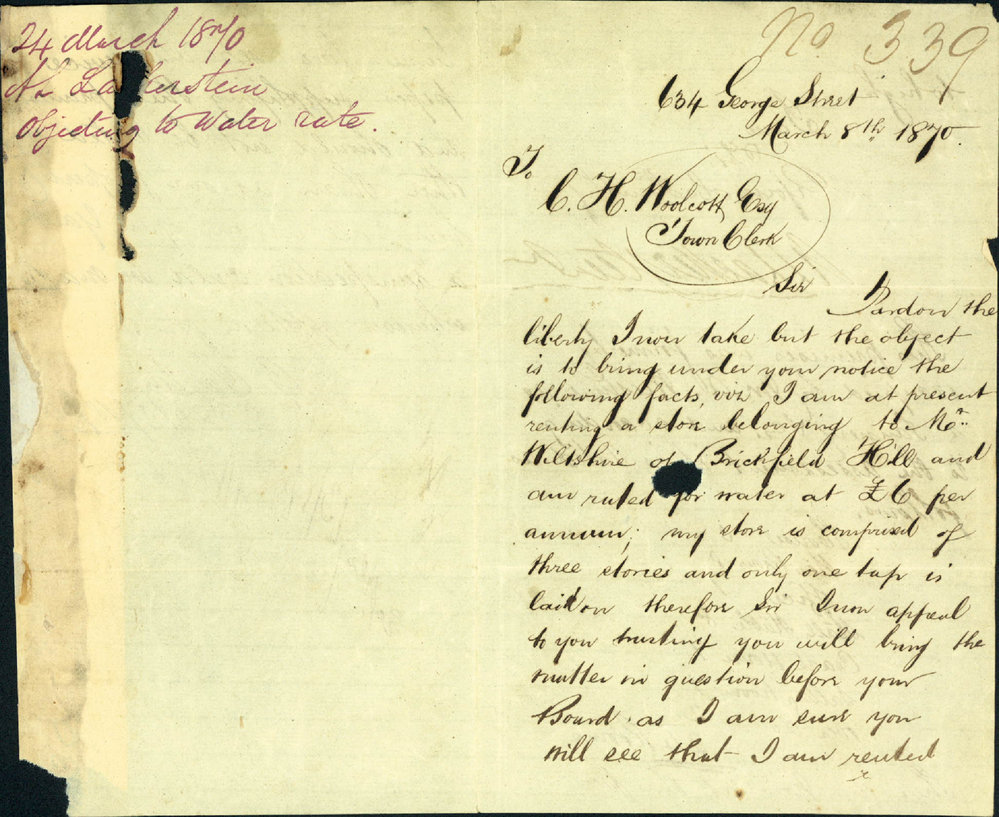 24 March 1870
objecting to Water rate.
No 339
634 George Street
March 8th 1870.
To
C. H. Woolcott Esq
Town Clerk
Sir
Pardon the
liberty I now take but the object
is to bring under your notice the
following facts, viz, I am at present
renting a store belonging to Mr
Wiltshire of Brickfield Hill and
am rated for water at £6 per
annum; my store is comprised of
three stories and only one tap is
laid on therefore Sir I now appeal
to you trusting you will bring the
matter in question before your
Board as I am sure you
will see that I am rented